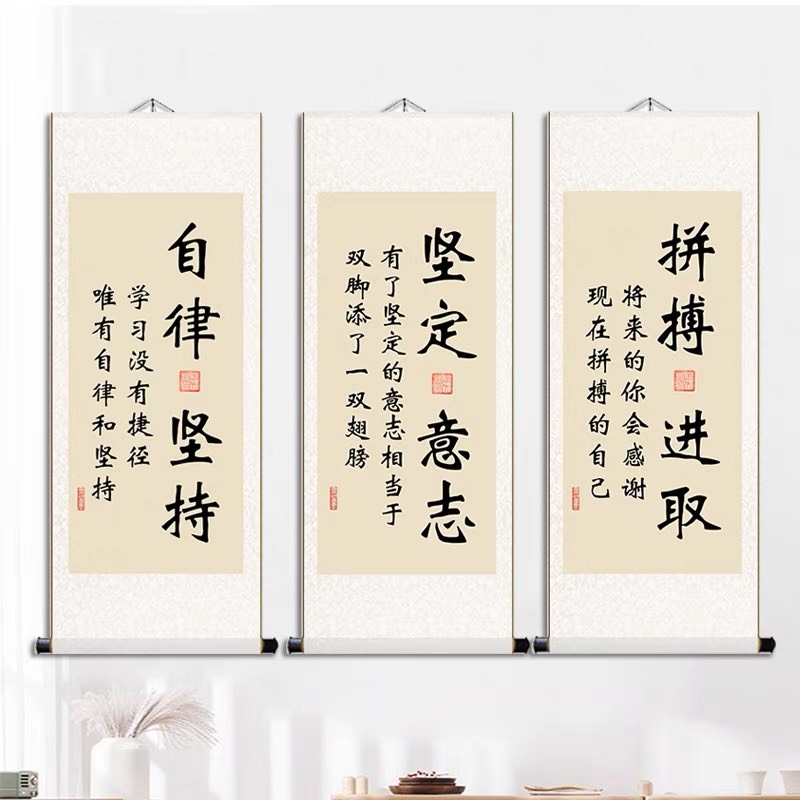 自律坚持
学习没有捷径
唯有自律和坚持
坚定意志
有了坚定的意志相当于
双脚添了一双翅膀
拼搏进取
将来的你会感谢
现在拼搏的自己